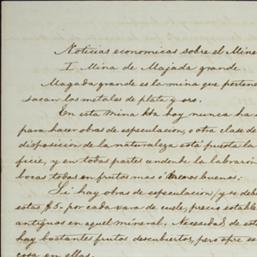 Noticias economicas sobre el Mine
I Mina de Majada grande.
Magada grande es la mina que pertene
sacan los metales de plata y oro.
En esta mina hoy nunca ha
para hacer obras de especulacion, o otra clase de
disposicion de la naturaleza está puesta la
ficie, y en todas partes se la labracion
bocas todas en frutos mas ó menos buenos.
Si hay obras de especulacion
estas $5. por cada vara de cuele, precio estable
antiguos en aquel mineral. Necesidad de esta
hay bastantes frutos descubiertos, pero
cosa en ellas.